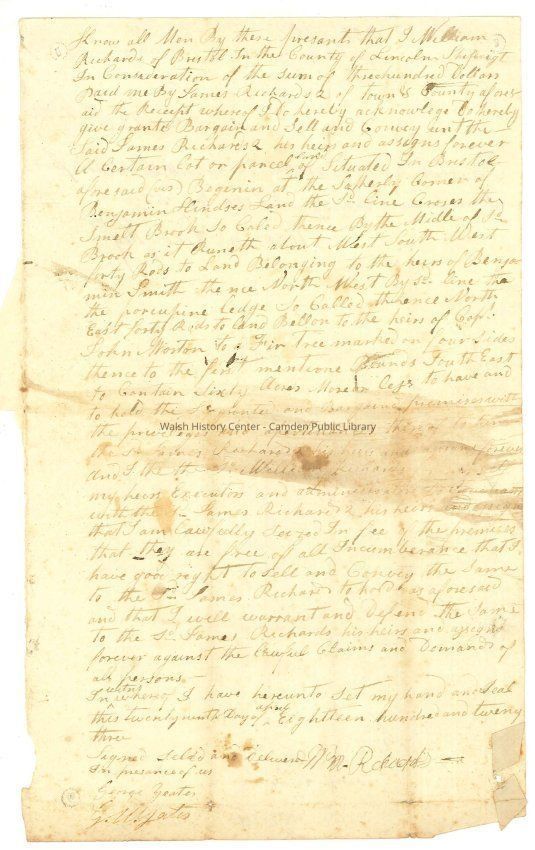 Know all Men By these presants that I William
Richards of Bristol In the County of Lincoln Shipwrigt
In Consideration of the Sum of Threehundred Dollars
paid me By James Richards 2 of town & County afores
aid the Receipt whereof I do hereby acknowlege Do hereby
give grant Bargain and Sell and Convey unt the
Said James Richards 2 his heirs and assigns forever
A Certain Lot or parcel of land Situated In Bristol
aforesaid viz Beginin at the Corner of
Benjamin Hindses Land the Sd. line Croses the
Smelt Brook So Caled thence By the Midle of sd.
Brook as it Runeth about West South West
forty Rods to Land Belonging to the heirs of Benja
min Smith thence North West By Sd. line to
the porcupine ledge So Called thence North
East forty Rods to land Bellon to the heirs of Cap.
John to a Fir Tree marked on four Sides
thence to the first mentione Bounds South East
to Contain Sixty Acres More or Les to have and
to hold the Sd. grante and Bargaind premises with
the privileges and thereof to
the Sd. James Richards his heirs and forever
and I the Sd. William Richards
my heirs Executors and administrators
with the Sd. James Richards 2 his heirs
that I am Lawfully Seized In fee of the premises
that they are free of all Incumberance that I
have good right to Sell and Convey the Same
to the Sd. James Richards to hold as aforesaid
and that I will warrant and Defend the Same
to the Sd. James Richards his heirs and asigns
forever against the Lawful Claims and Demands of
all persons
In witns whereof I have hereunto Set my hand and Seal
this twentyninth Day of april Eighteen hundred and twenty
three
Signed Seled and Wm Richards
In presance of us
George Yeates
G. W. Yates
Walsh History Center - Camden Public Library